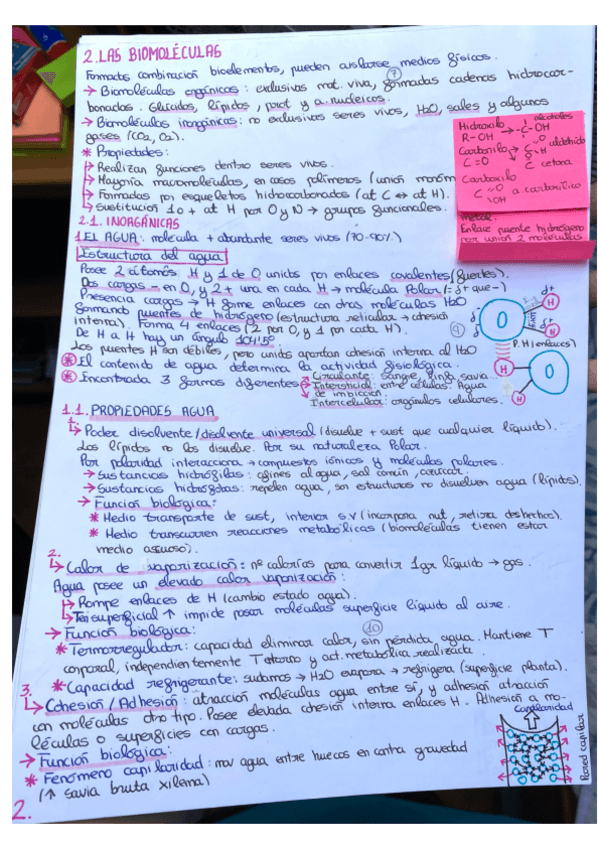 2. LAS BIOMOLÉCULAS
Formadas combinación bioelementos, pueden aislarse medios físicos.
→ Biomoléculas orgánicas: exclusivas mat. viva, formadas cadenas hidrocar-
bonadas. Glúcidos, lípidos, prot y a. nucleicos.
→ Biomoléculas inorgánicas: no exclusivas seres vivos, H2O, sales y algunos
gases (CO2, O2).
* Propiedades:
→ Realizan funciones dentro seres vivos.
→ Mayoría macromoléculas, en casos polímeros (unión monóm
→ Formadas por esqueletos hidrocarbonados (at C ↔ at H).
→ Sustitución 1 o + at H por O y N → grupos funcionales.
Hidroxilo → -C-OH alcoholes
R-OH
Carbonilo → C=O H aldehído
C=O C=O cetona
Carboxilo
C=O OH a carboxílico
metal.
Enlace puente hidrógeno
por unión 2 moléculas
2.1. INORGÁNICAS
1. EL AGUA: molécula + abundante seres vivos (70-90%)
Estructura del agua
Posee 2 átomos H y 1 de O unidos por enlaces covalentes (fuertes).
Dos cargas - en O, y 2 + una en cada H → molécula Polar (= d+ que -)
Presencia cargas → H forme enlaces con otras moléculas H2O
formando puentes de hidrógeno (estructura reticular → cohesión
interna). Forma 4 enlaces (2 por O, y 1 por cada H).
De H a H hay un ángulo 104'5º
Los puentes H son débiles, pero unidos aportan cohesión interna al H2O
* El contenido de agua determina la actividad fisiológica.
* Encontrada 3 formas diferentes → Circulante: sangre, linfa, savia
→ Intersticial: entre células. Agua
de imbición
Intercelular: orgánulos celulares.
d- O d+ H
d- d+ H
P. H (enlaces)
H O
H
1.1. PROPIEDADES AGUA
1. → Poder disolvente/disolvente universal (disuelve + sust que cualquier líquido).
Los lípidos no los disuelve. Por su naturaleza Polar.
Por polaridad interacciona → compuestos iónicos y moléculas polares.
→ Sustancias hidrófilas: afines al agua, sal común, azúcar.
→ Sustancias hidrófobas: repelen agua, son estructuras no disuelven agua (lípidos).
→ Función biológica:
* Medio transporte de sust, interior s.v (incorpora nut, retira deshechos).
* Medio transcurren reacciones metabólicas (biomoléculas tienen estar
medio acuoso).
2.
→ Calor de vaporización: nº calorías para convertir 1gr líquido → gas.
Agua posee un elevado calor vaporización:
→ Rompe enlaces de H (cambio estado agua).
→ Ten superficial ↑ impide pasar moléculas superficie líquido al aire.
→ Función biológica:
10
* Termorregulador: capacidad eliminar calor, sin pérdida agua. Mantiene T
corporal, independientemente T entorno y act. metabólica realizada.
* Capacidad refrigerante: sudamos → H2O evapora → refrigera (superficie planta).
3.
→ Cohesión/Adhesión: atracción moléculas agua entre sí, y adhesión atracción
con moléculas otro tipo. Posee elevada cohesión interna enlaces H. Adhesión a mo-
léculas o superficies con cargas.
→ Función biológica:
* Fenómeno capilaridad: mov agua entre huecos en contra gravedad
(↑ savia bruta xilema)
Capilaridad
Pared capilar
2.